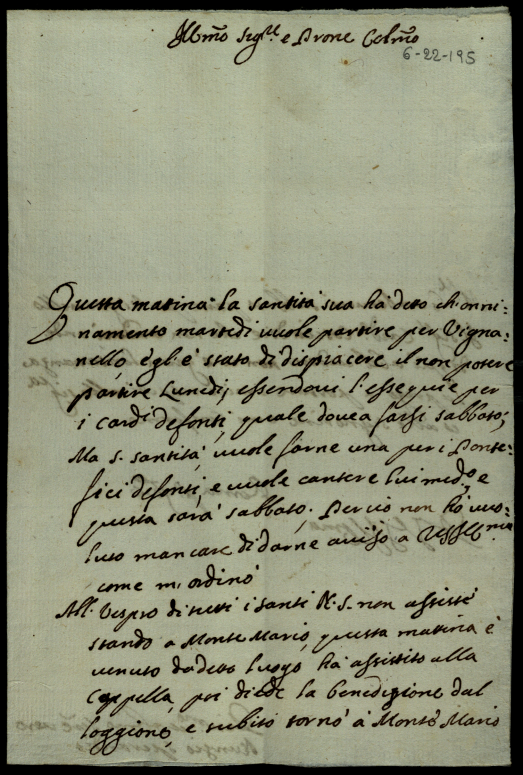 Illmo Sigre e Prone Colmo
6-22-195
Questa matina la santita sua ha detto ch'onni=
namento martedi vuole partire per Vigna=
nello, egl'è stato di dispiacere il non potere
partire Lunedi, essendovi l'essequie per
i Cardi defonti, quale dovea farsi sabbato;
Ma S. santità, vuole farne una per i Ponte=
fici defonti, e vuole cantere lui medo, e
questa sarà sabbato. Per ciò non ho vuo=
luto mancare di darne aviso a VSS Illma
come mi ordinò
All'Vespro di tutti i santi N.S. non assistè
stando a Monte Mario, questa matina è
venuto da detto luogo, ha assistito alla
Cappella, poi diede la benedizione dal
loggione, e subito tornò à Monte Mario